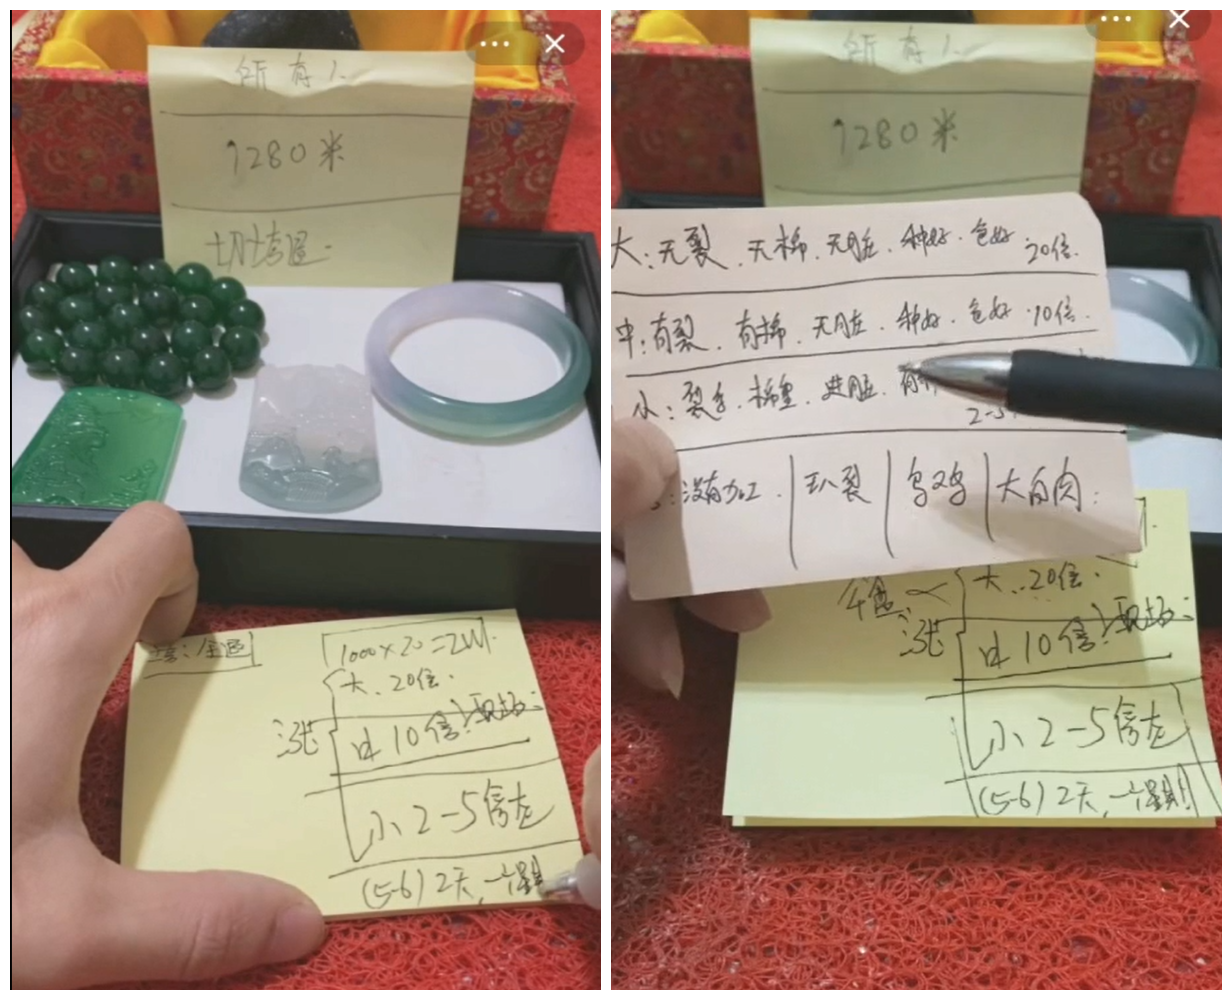 所有人
1280米
大.20倍.
1000×20=2W
涨
中10倍
现场:
小2-5倍左
(5-6)2天,一星期
所有人
1280米
大:无裂.无棉.无脏.种好.色好.20倍.
中:有裂.有棉.无脏.种好.色好.10倍.
小:裂多.棉重.进脏.
2-5
:没有加工.|玐裂|乌鸡|大白肉:
大..20倍.
涨
中10倍
现场:
小2-5倍左
(5-6)2天,一星期